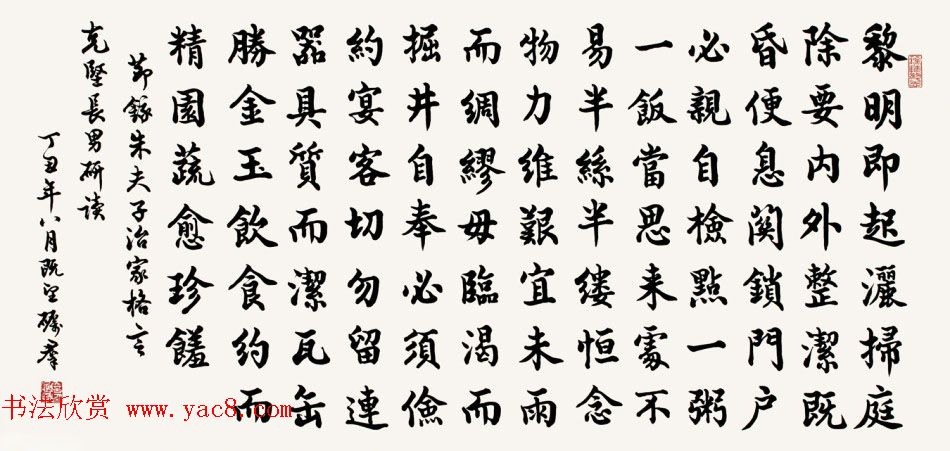 黎明即起灑掃庭
除要内外整潔既
昏便息関鎖門户
必親自檢點一粥
一飯當思来處不
易半絲半縷恒念
物力維艱宜未雨
而綢繆毋臨渴而
掘井自奉必須儉
約宴客切勿留連
器具質而潔瓦缶
勝金玉飲食约而
精園蔬愈珍饈
節錄朱夫子治家格言
克堅長男研读
丁丑年八月既望礪羣
书法欣赏 www.yac8.com